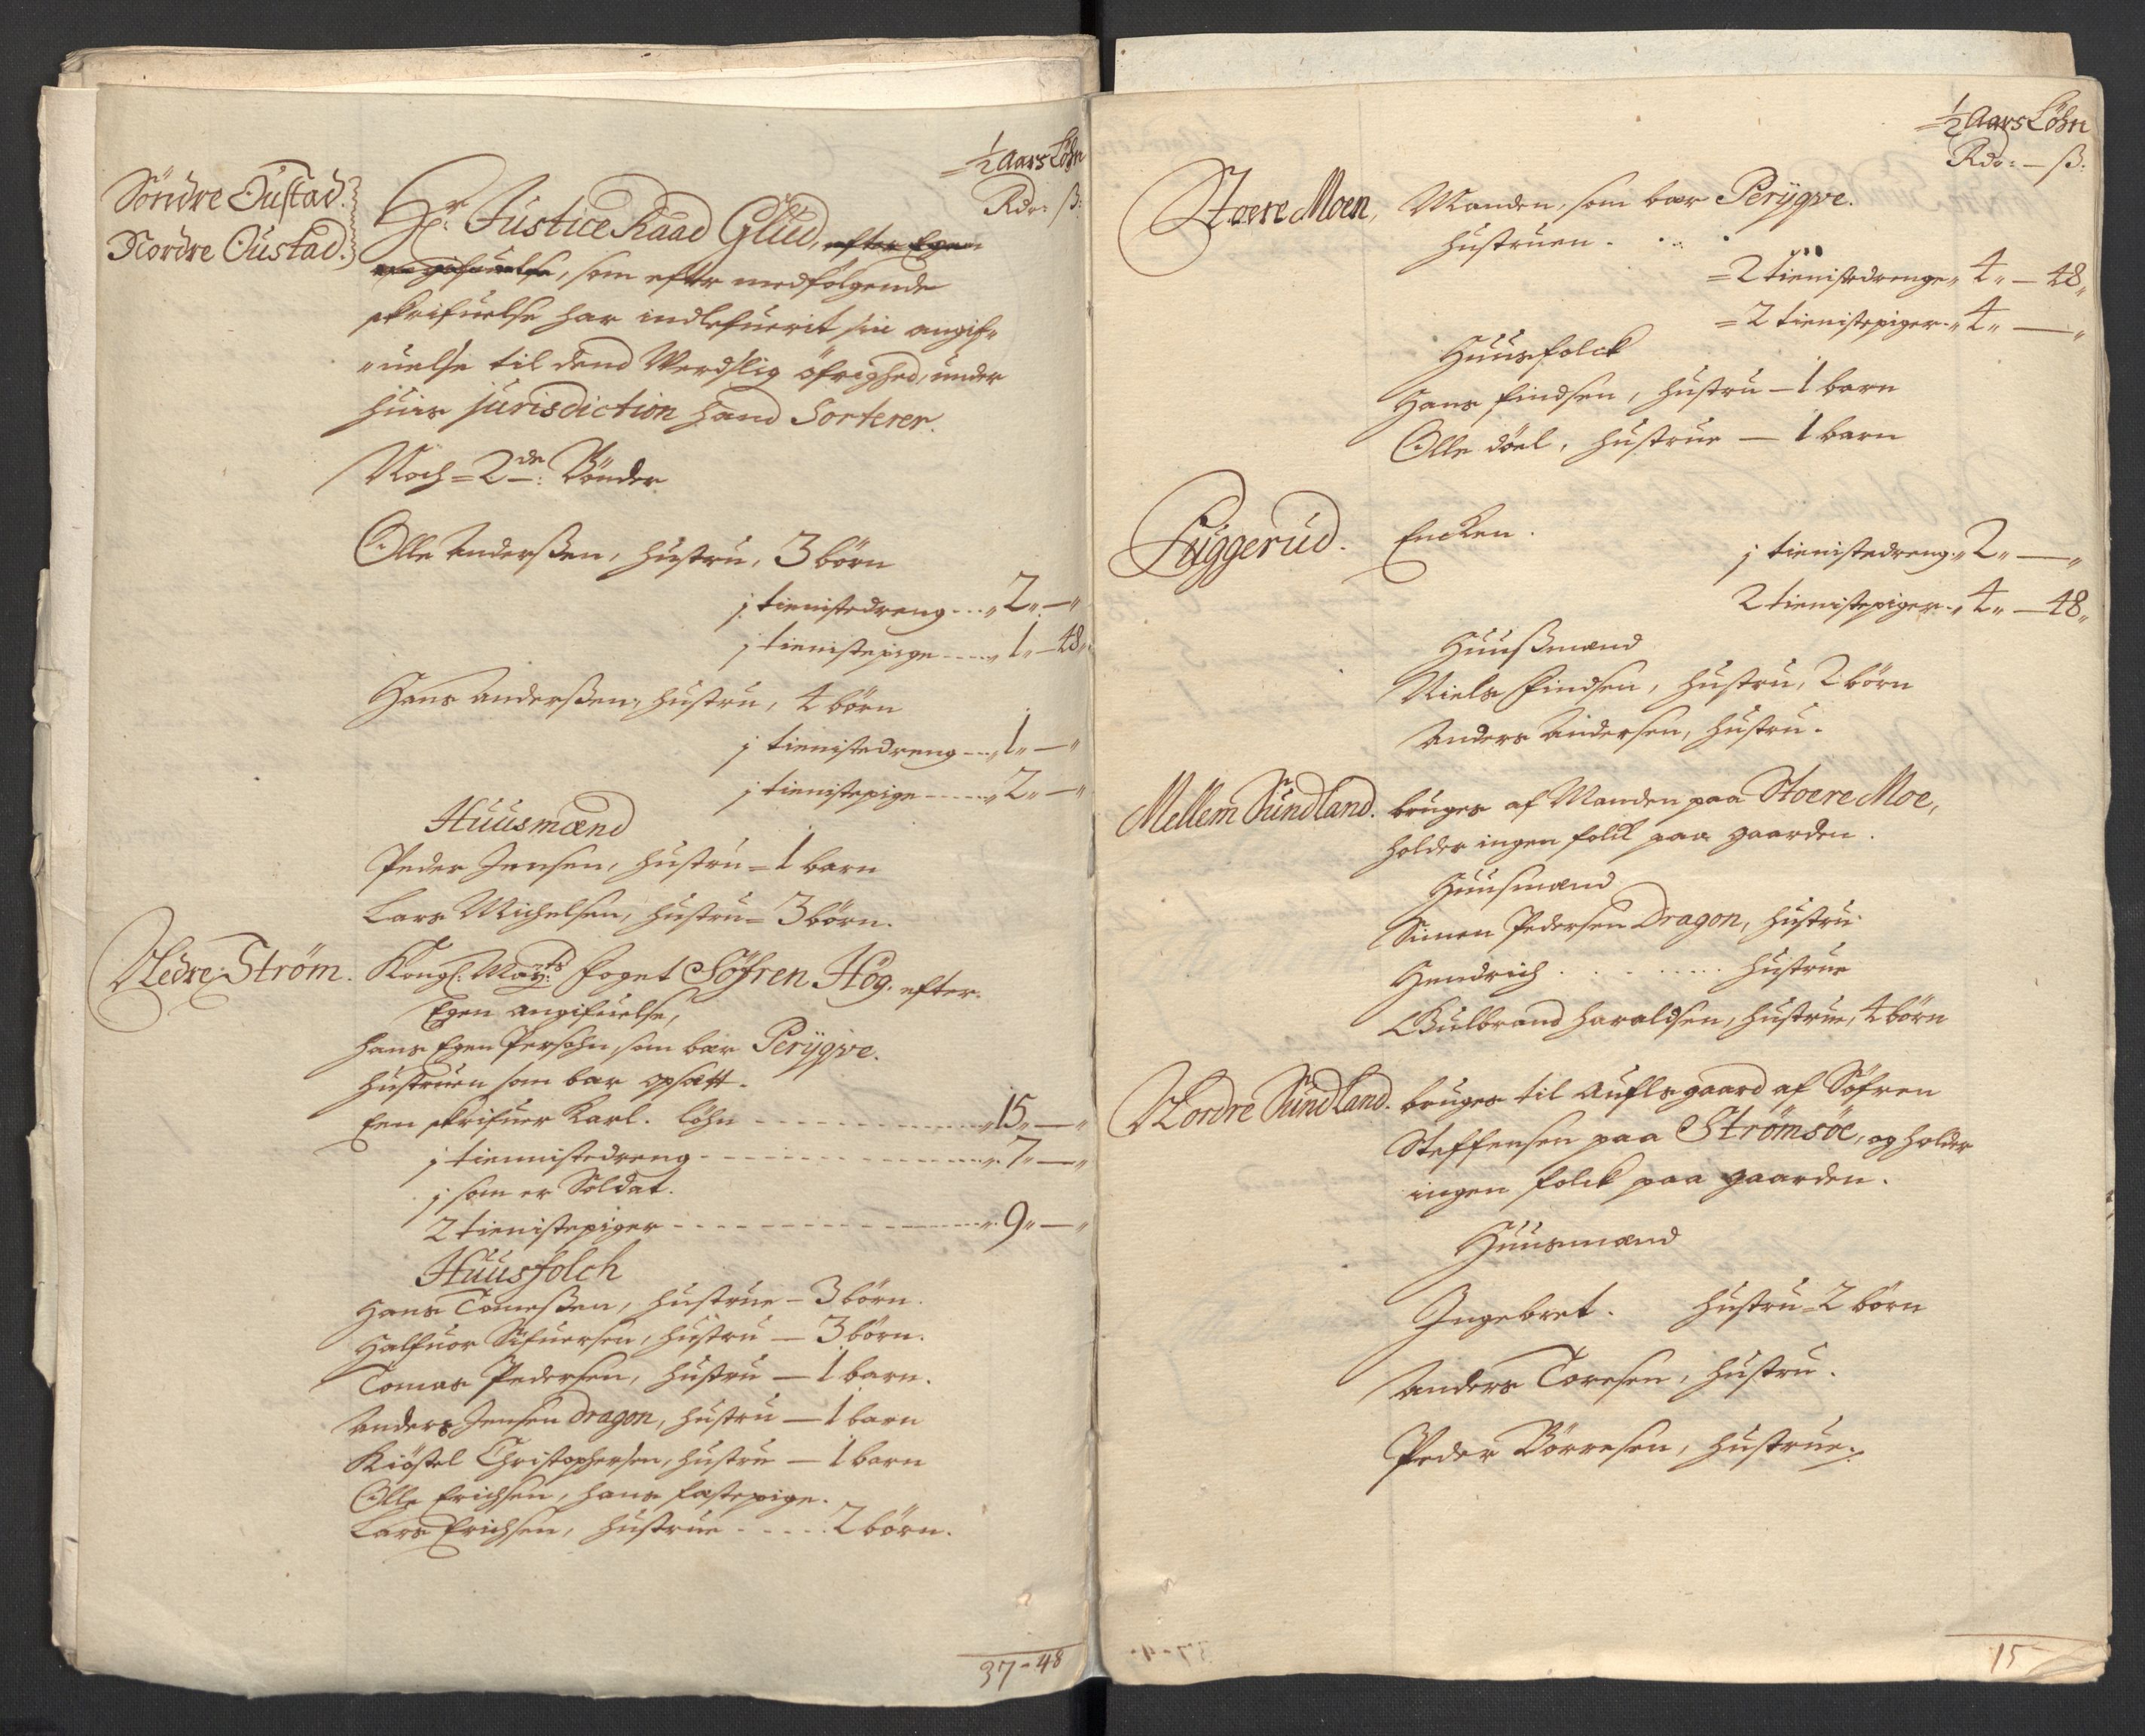 ½ Aars Löhn
Rdr: ß:
Söndre Oustad.
Nordre Oustad.
Hr. Justice Raad Glud, efter Egen
angifuelse, som efter medfölgende
skrifuelse har indlefuerit sin angif-
uelse til dend Werdslig öfrighed, under
huis jurisdiction hand Sorterer.
Noch = 2de: Bönder
Olle Anderßen, hustru, 3 börn
j tienistedreng ... 2 " — "
j tienistepige .... 1 " — 48 "
Hans Anderßen, hustru, 4 börn
j tienistedreng ... 1 " — "
j tienistepige .... 2 " — "
Huusmænd
Peder Jensen, hustru = 1 barn
Lars Michelsen, hustru = 3 börn.
Nedre Ström. Kongl: Mayts: foget Söfren Hög. efter
Egen angifuelse,
hans Egen Persohn, som bær Perÿqve.
hustruen som bær opsatt.
Een skrifuer Karl. löhn ........ 15 " — "
j tiennistedreng ........ 7 " — "
j som er Soldat.
2 tienistepiger ........ 9 " — "
Huusfolch
Hans Tomeßen, hustrue — 3 börn.
Halfuor Sifuersen, hustru — 3 börn.
Tomas Pedersen, hustru — 1 barn.
Anders Jensen Dragon, hustru — 1 barn
Kiöstel Christophersen, hustru — 1 barn
Olle Erichsen, hans fæstepige.
Lars Erichsen, hustrue ..... 2 börn.
37 - 48
½ Aars Löhn
Rdr: — ß:
Stoere Moen, Manden, som bær Perÿqve.
hustruen. . .
= 2 tienistedrenge " 4 " — 48 "
= 2 tienistepiger " 4 " — "
Huusfolck
Hans findsen, hustru — 1 barn
Olle döel, hustrue — 1 barn
Luggerud. Encken.
j tienistedreng " 2 " — "
2 tienistepiger " 4 " — 48 "
Huußmænd
Niels findsen, hustru, 2 börn
Anders Andersen, hustru.
Mellem Sundland. bruges af Manden paa Stoere Moe,
holder ingen folck paa gaarden.
Huusmænd
Simen Pedersen Dragon, hustru
Hendrich . . . . . . hustrue
Gulbrand Haraldsen, hustrue, 4 börn
Nordre Sundland. bruges til Aufls gaard af Söfren
Steffensen paa Strömsöe, og holder
ingen folck paa gaarden.
Huusmænd
Ingebret. hustru = 2 börn
Anders Toresen, hustru.
Peder Börresen, hustrue.
15